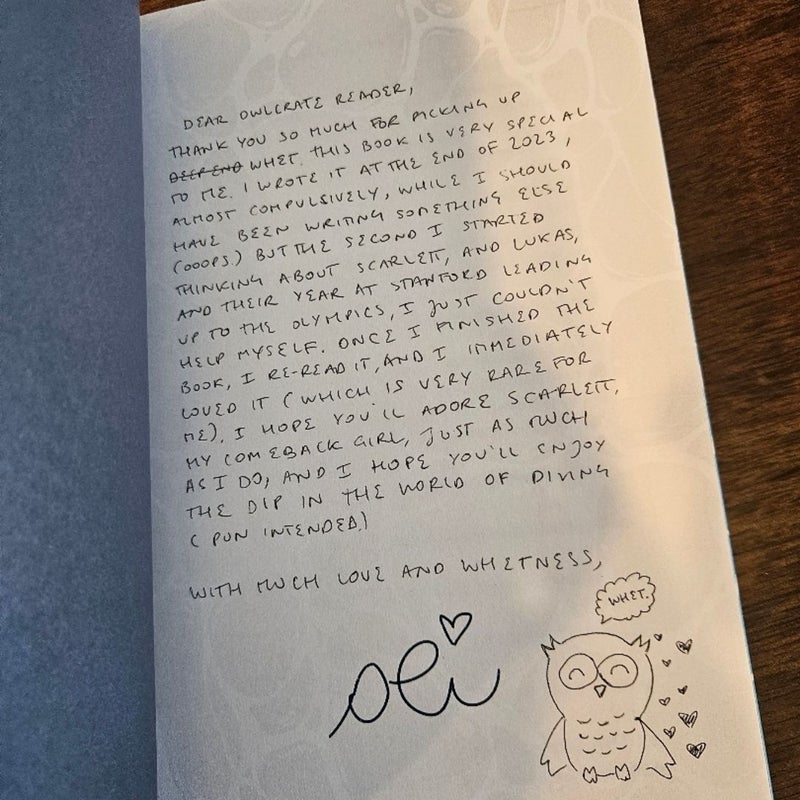 DEAR OWLCRATE READER,
THANK YOU SO MUCH FOR PICKING UP
DEEP END WHET. THIS BOOK IS VERY SPECIAL
TO ME. I WROTE IT AT THE END OF 2023,
ALMOST COMPULSIVELY, WHILE I SHOULD
HAVE BEEN WRITING SOMETHING ELSE
(OOOPS.) BUT THE SECOND I STARTED
THINKING ABOUT SCARLETT, AND LUKAS,
AND THEIR YEAR AT STANFORD LEADING
UP TO THE OLYMPICS, I JUST COULDN'T
HELP MYSELF. ONCE I FINISHED THE
BOOK, I RE-READ IT, AND I IMMEDIATELY
LOVED IT (WHICH IS VERY RARE FOR
ME). I HOPE YOU'LL ADORE SCARLETT,
MY COMEBACK GIRL, JUST AS MUCH
AS I DO, AND I HOPE YOU'LL ENJOY
THE DIP IN THE WORLD OF DIVING
(PUN INTENDED.)
WITH MUCH LOVE AND WHETNESS,
ali
WHET.